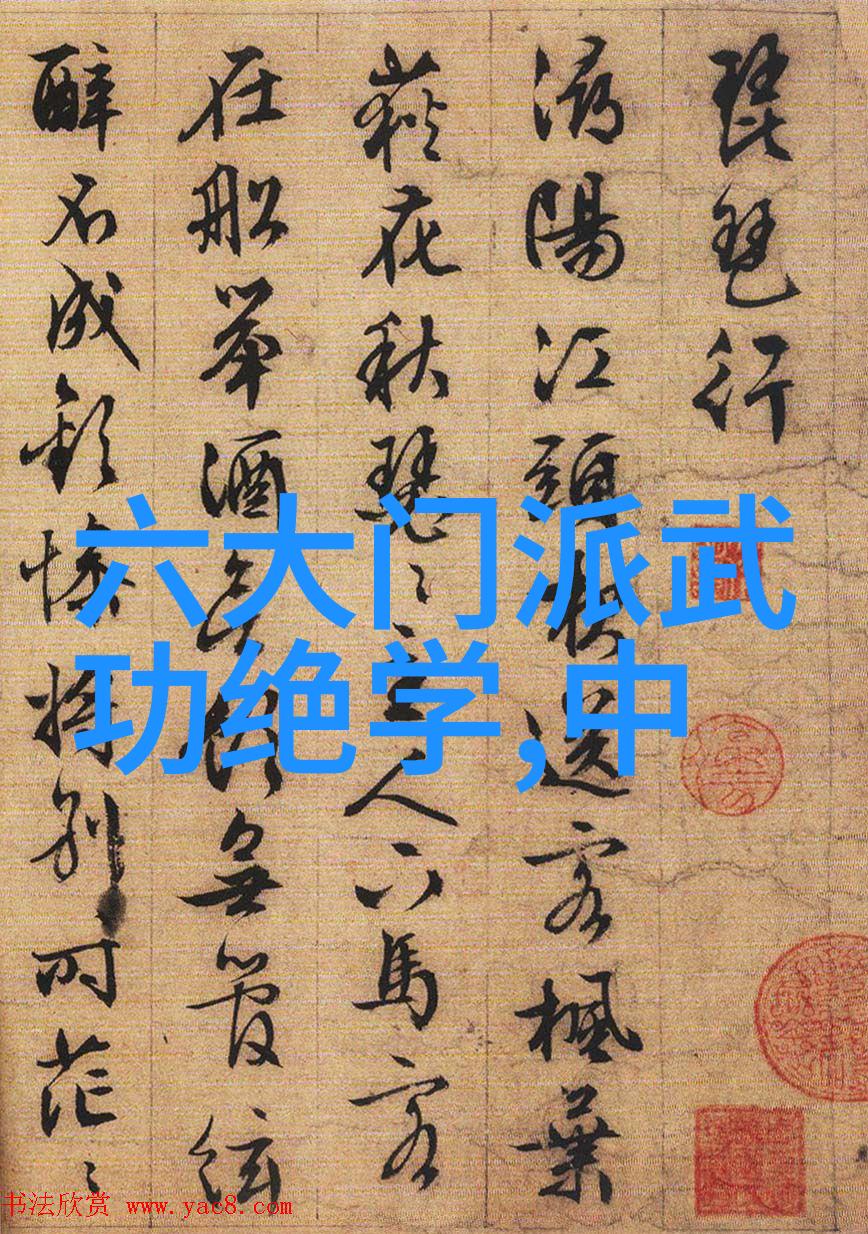 琵琶行
潯陽江頭夜送客楓葉
荻花秋瑟〻主人下馬客
在船舉酒欲飲無管絃
醉不成歡慘將別時茫〻
六大门派武
功绝学,中
书法欣赏 www.yac8.com